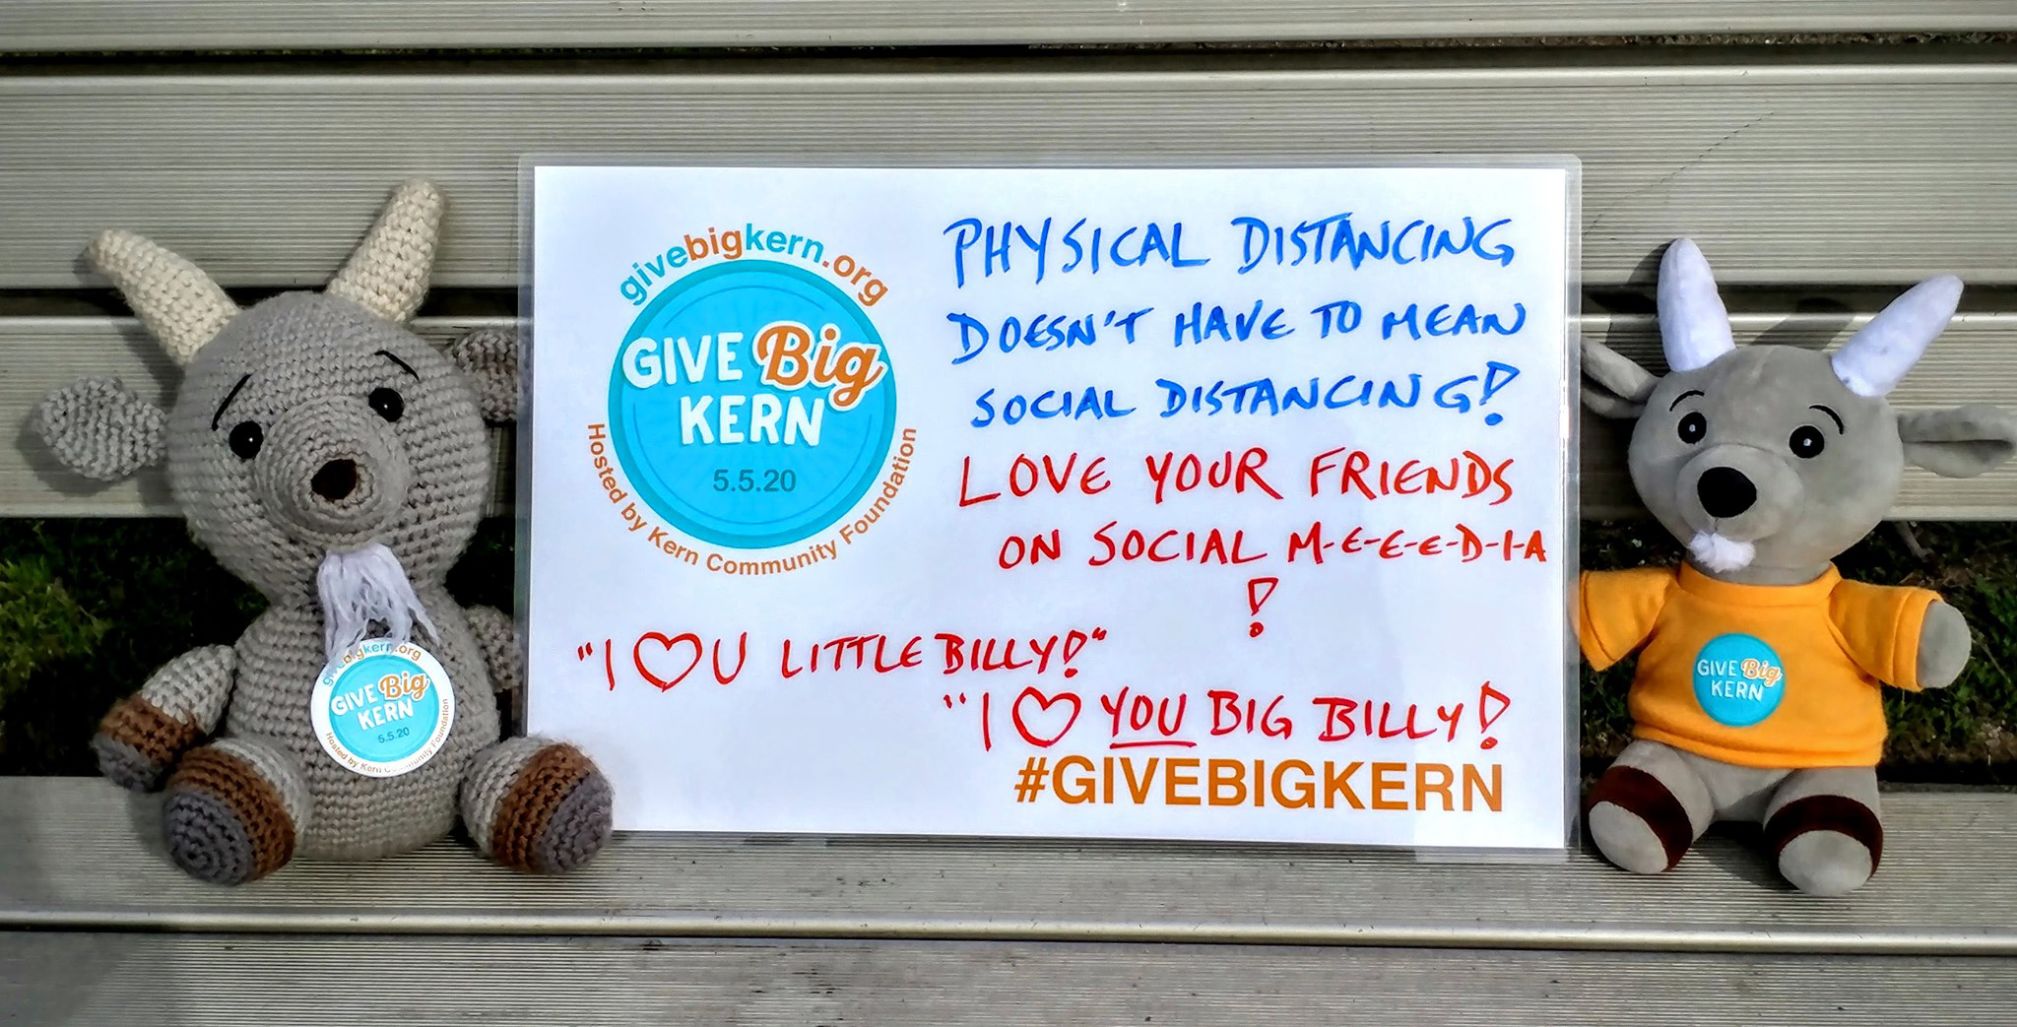 givebigkern.org
GIVE Big
KERN
5.5.20
Hosted by Kern Community Foundation
PHYSICAL DISTANCING
DOESN'T HAVE TO MEAN
SOCIAL DISTANCING!
LOVE YOUR FRIENDS
ON SOCIAL M-E-E-E-D-I-A
!
"I ♡ U LITTLE BILLY!"
"I ♡ YOU BIG BILLY!
#GIVEBIGKERN
givebigkern.org
GIVE Big
KERN
5.5.20
Hosted by Kern Community Foundation
GIVE Big
KERN